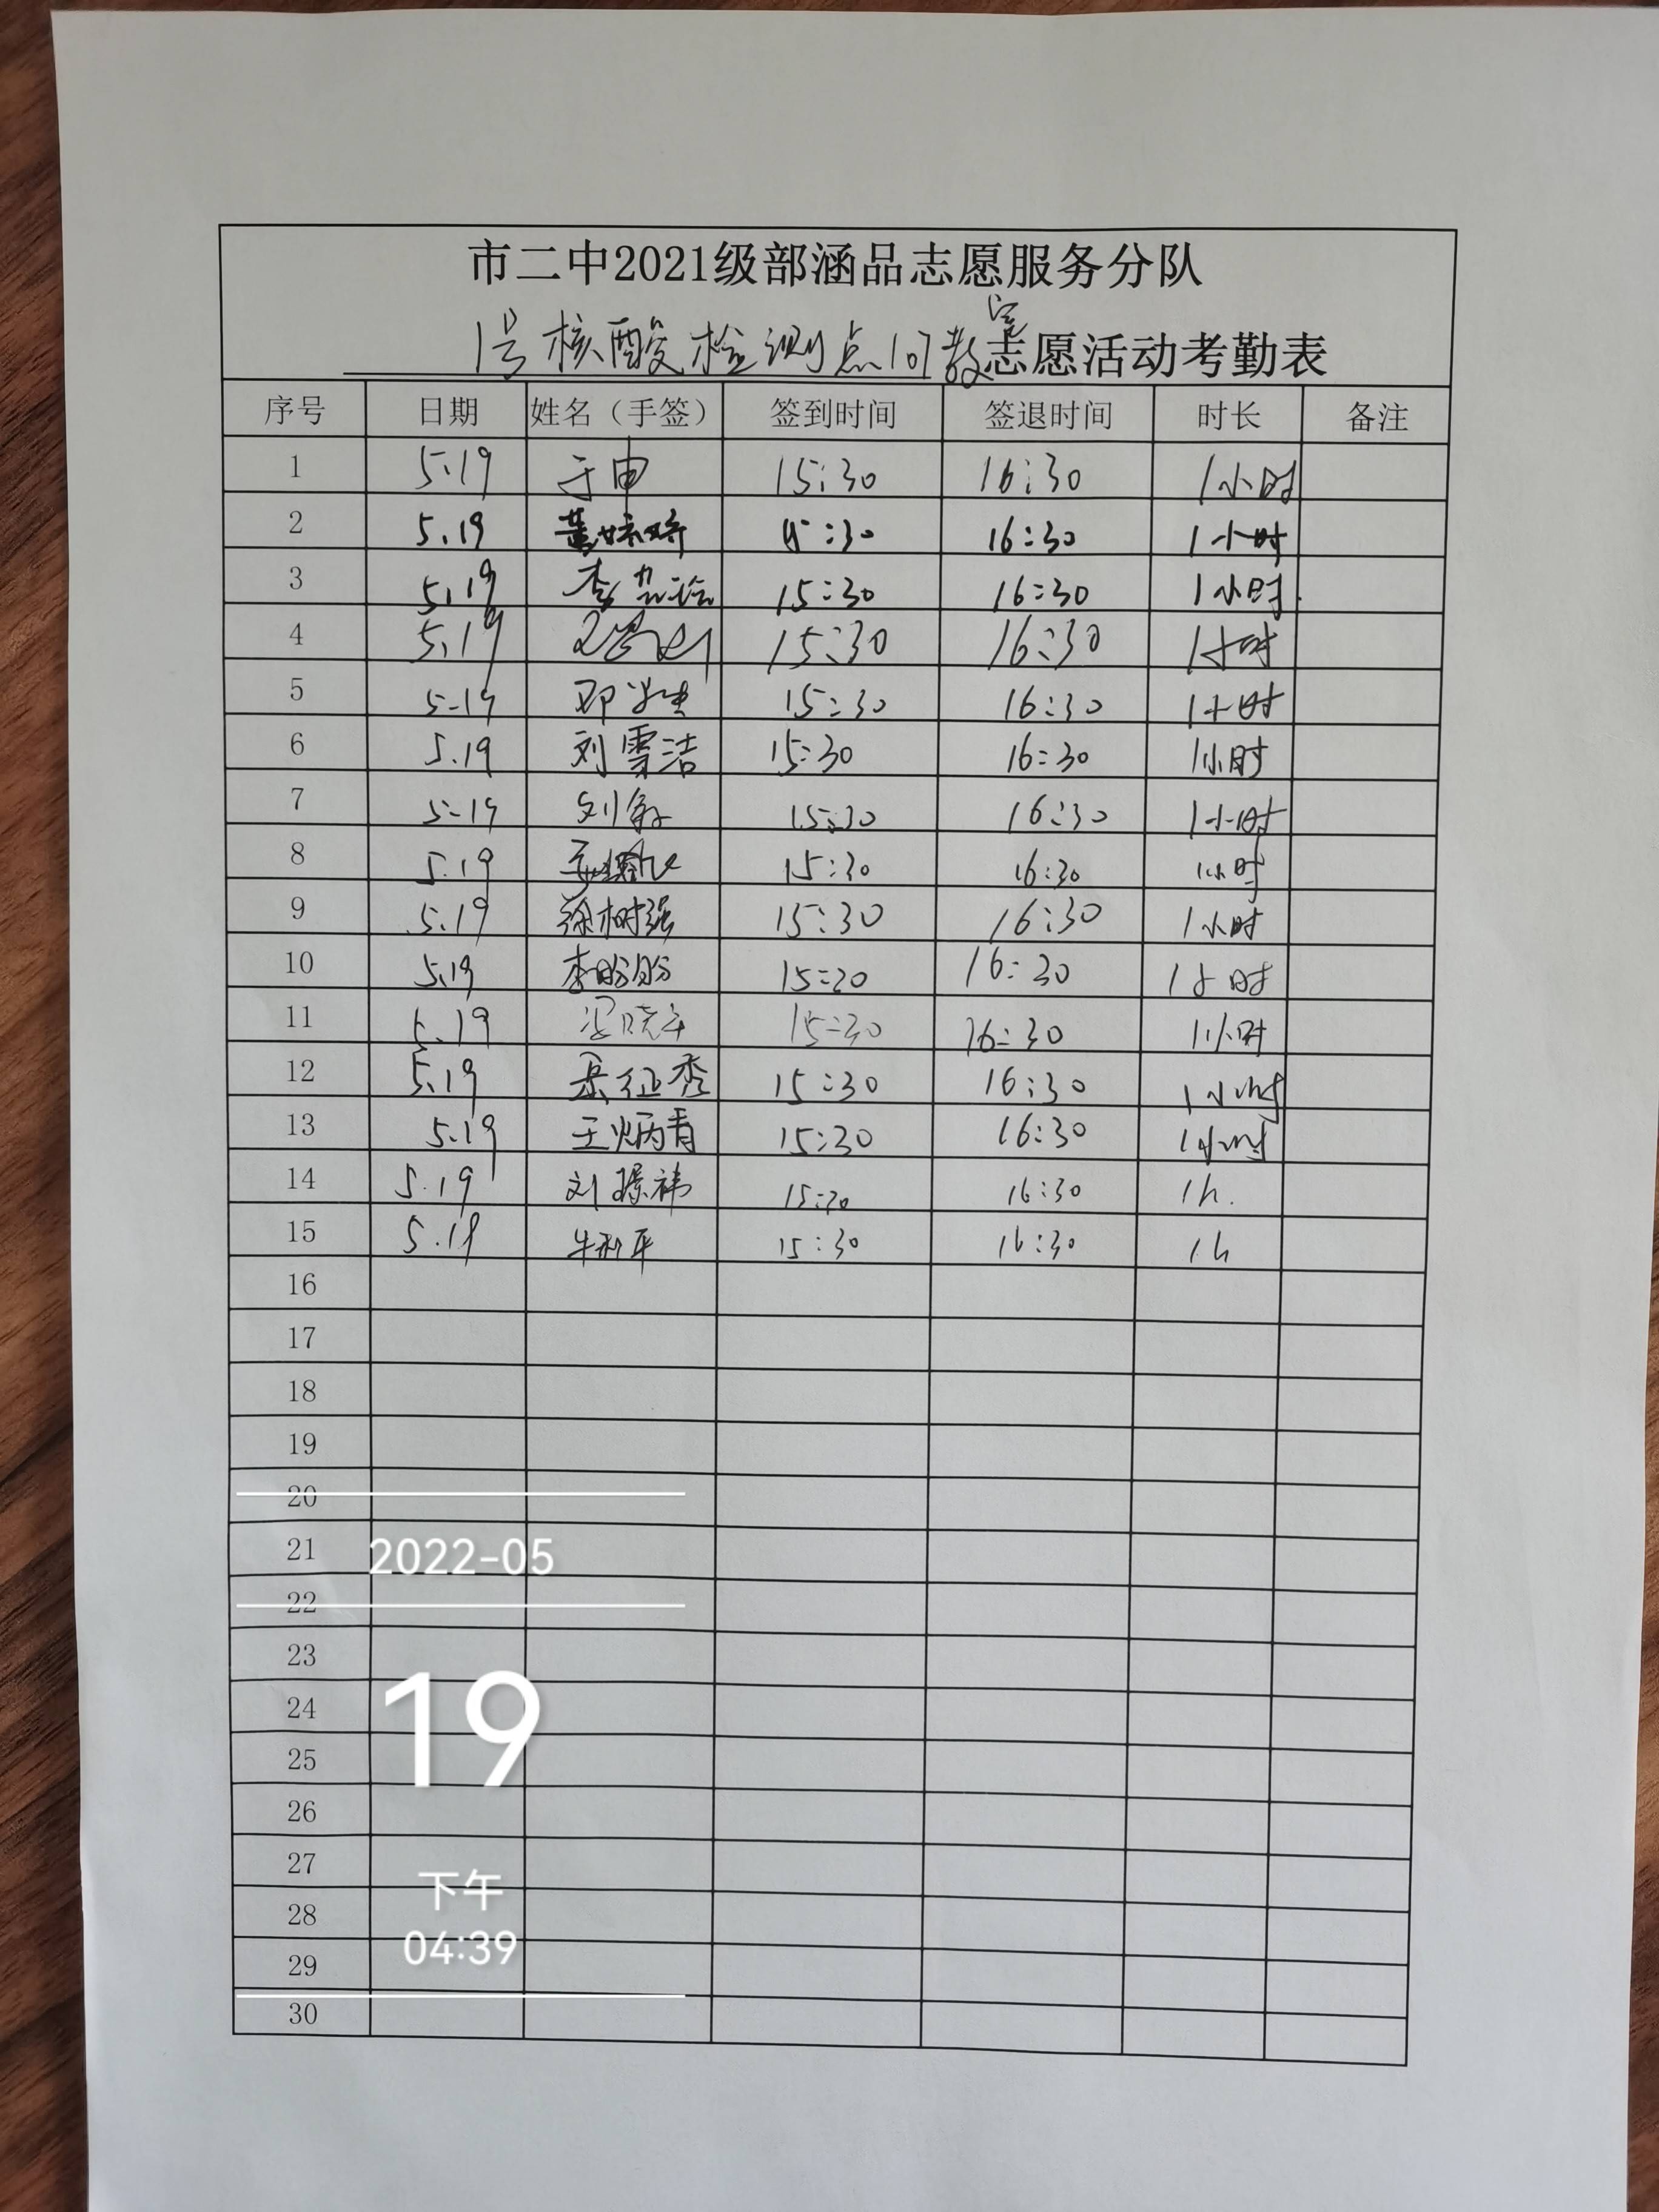 市二中2021级部涵品志愿服务分队
1号核酸检测点107教室志愿活动考勤表
序号 日期 姓名（手签） 签到时间 签退时间 时长 备注
1 5.19 于申 15:30 16:30 1小时
2 5.19 15:30 16:30 1小时
3 5.19 李 15:30 16:30 1小时
4 5.19 15:30 16:30 1小时
5 5.19 邓 15:30 16:30 1小时
6 5.19 刘雪洁 15:30 16:30 1小时
7 5.19 刘 15:30 16:30 1小时
8 5.19 15:30 16:30 1小时
9 5.19 徐树强 15:30 16:30 1小时
10 5.19 李盼盼 15:30 16:30 1小时
11 5.19 15:30 16:30 1小时
12 5.19 岳征秀 15:30 16:30 1小时
13 5.19 王炳青 15:30 16:30 1小时
14 5.19 刘璟祎 15:30 16:30 1h.
15 5.19 牛利平 15:30 16:30 1h
16
17
18
19
20
21 2022-05
22
23
24 19
25
26
27
28 下午
29 04:39
30